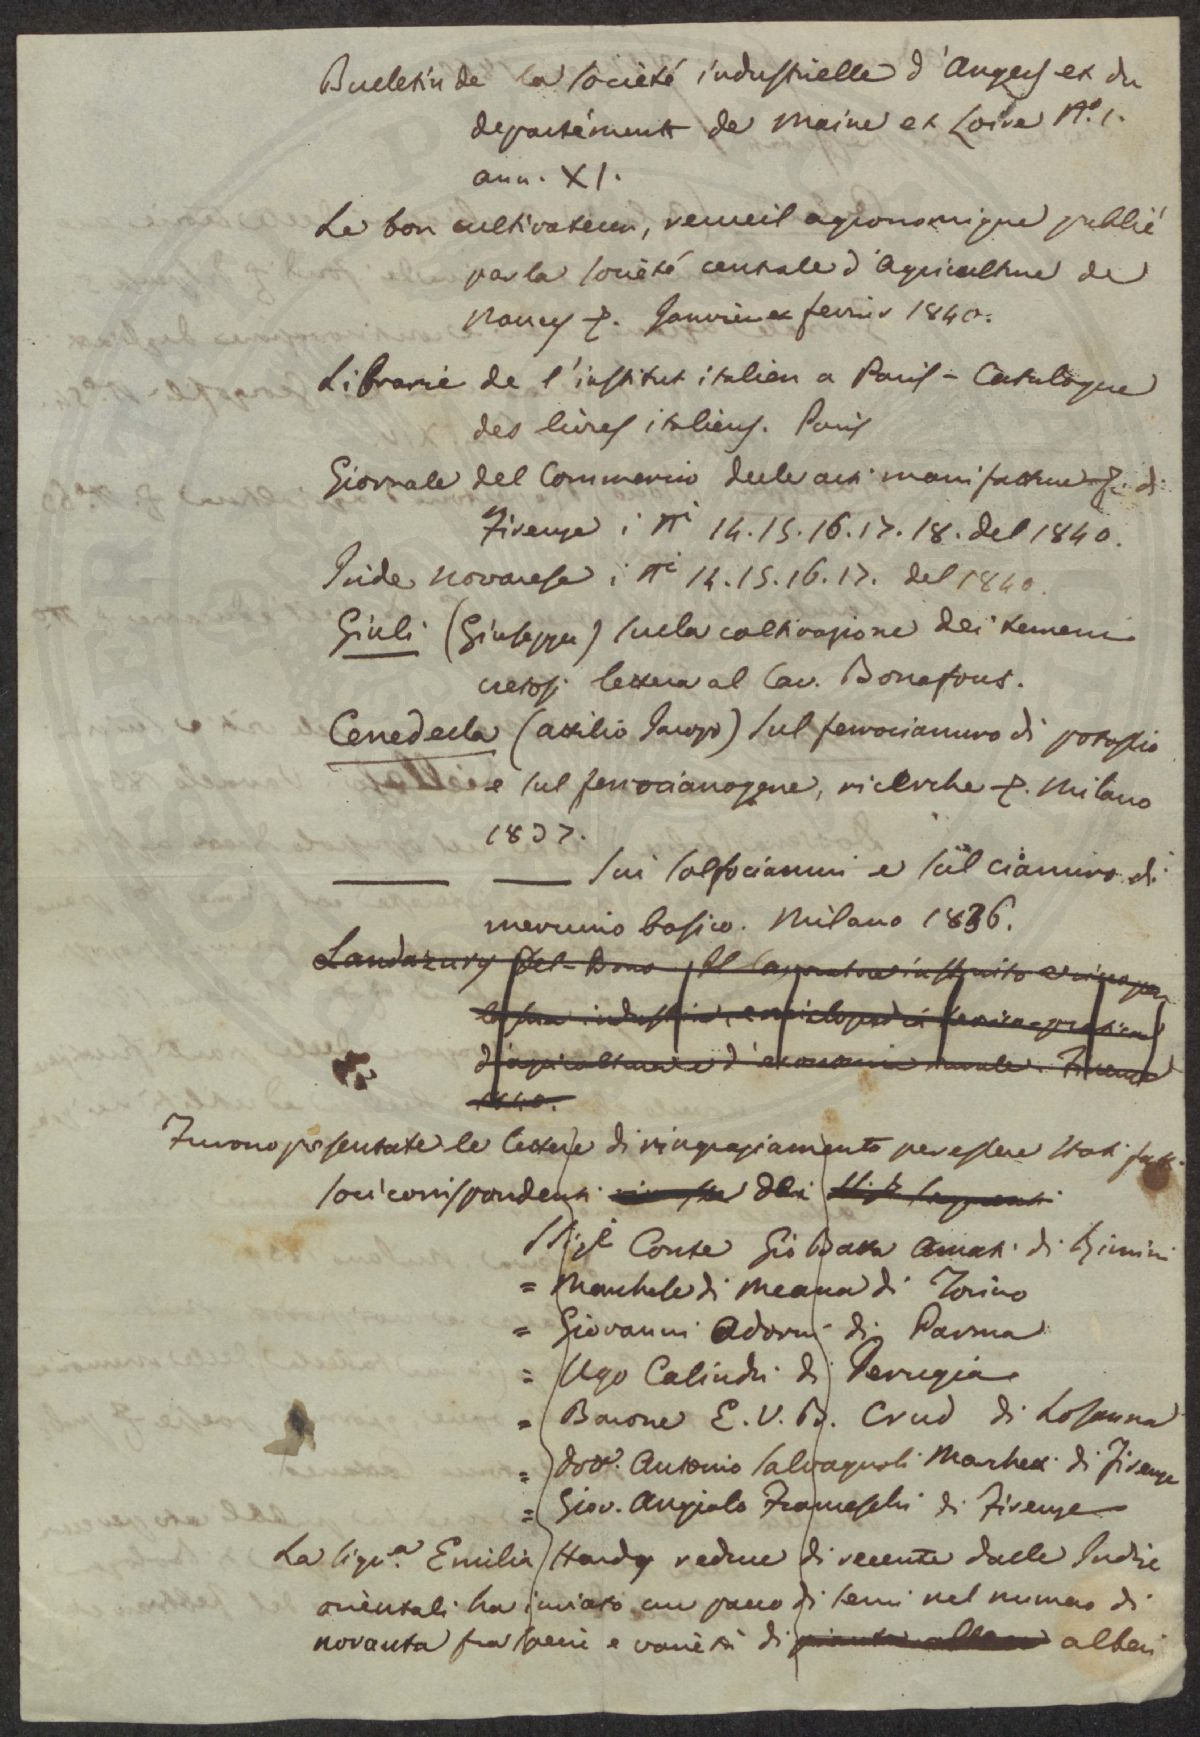 Bulletin de la Société industrielle d'Angers et du
departément de Maine et Loire N.° 1.
ann. XI.
Le bon cultivateur, recueil agronomique publié
par la Société centrale d'Agriculture de
Nancy &. Janvier et fevrier 1840.
Librarie de l'institut italien a Paris - Catalogue
des livres italiens. Paris
Giornale del Commercio delle arti manifatture &. di
Firenze i Ni 14. 15. 16. 17. 18. del 1840.
Iride novarese i Ni 14. 15. 16. 17. del 1840.
Giuli (Giuseppe) Sulla coltivazione dei terreni
cretosi lettera al Cav. Bonafous.
Cenedella (Attilio Jacopo) Sul ferrocianuro di potassio
e sul ferrocianogene, ricerche &. Milano
1837.
Sui Solfocianuri e sul cianuro di
mercurio basico. Milano 1836.
Landazury Del-Bono Il Campagnuolo instruito
la sua industria, enciclopedia teorico-pratica
d'agricoltura e d'economia rurale. Firenze
1840.
Furono presentate le lettere di ringraziamento per essere stati fatti
soci corrispondenti dei Sig.i Seguenti
Sig.i Conte Gio Batta Amati di Rimini
= Marchese di Meana di Torino
= Giovanni Adorni di Parma
= Ugo Calindri di Perugia
= Barone E. V. B. Crud di Losanna
= Dott. Antonio Salvagnoli Marchetti di Firenze
= Giov. Angiolo Franceschi di Firenze
La Sigr.a Emilia Hardy reduce di recente dalle Indie
orientali ha inviato un pacco di semi nel numero di
novanta fra specie e varietà di piante alberi